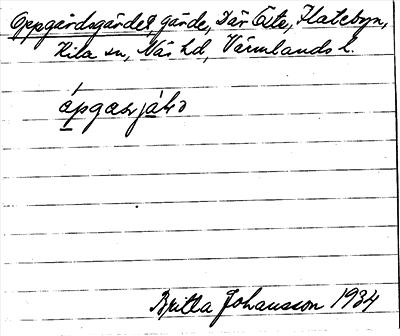 Oppgårdsgärdet, gärde, Där Öte, Flatebyn,
Kila sn, Näs hd, Värmlands l.
Britta Johansson 1934